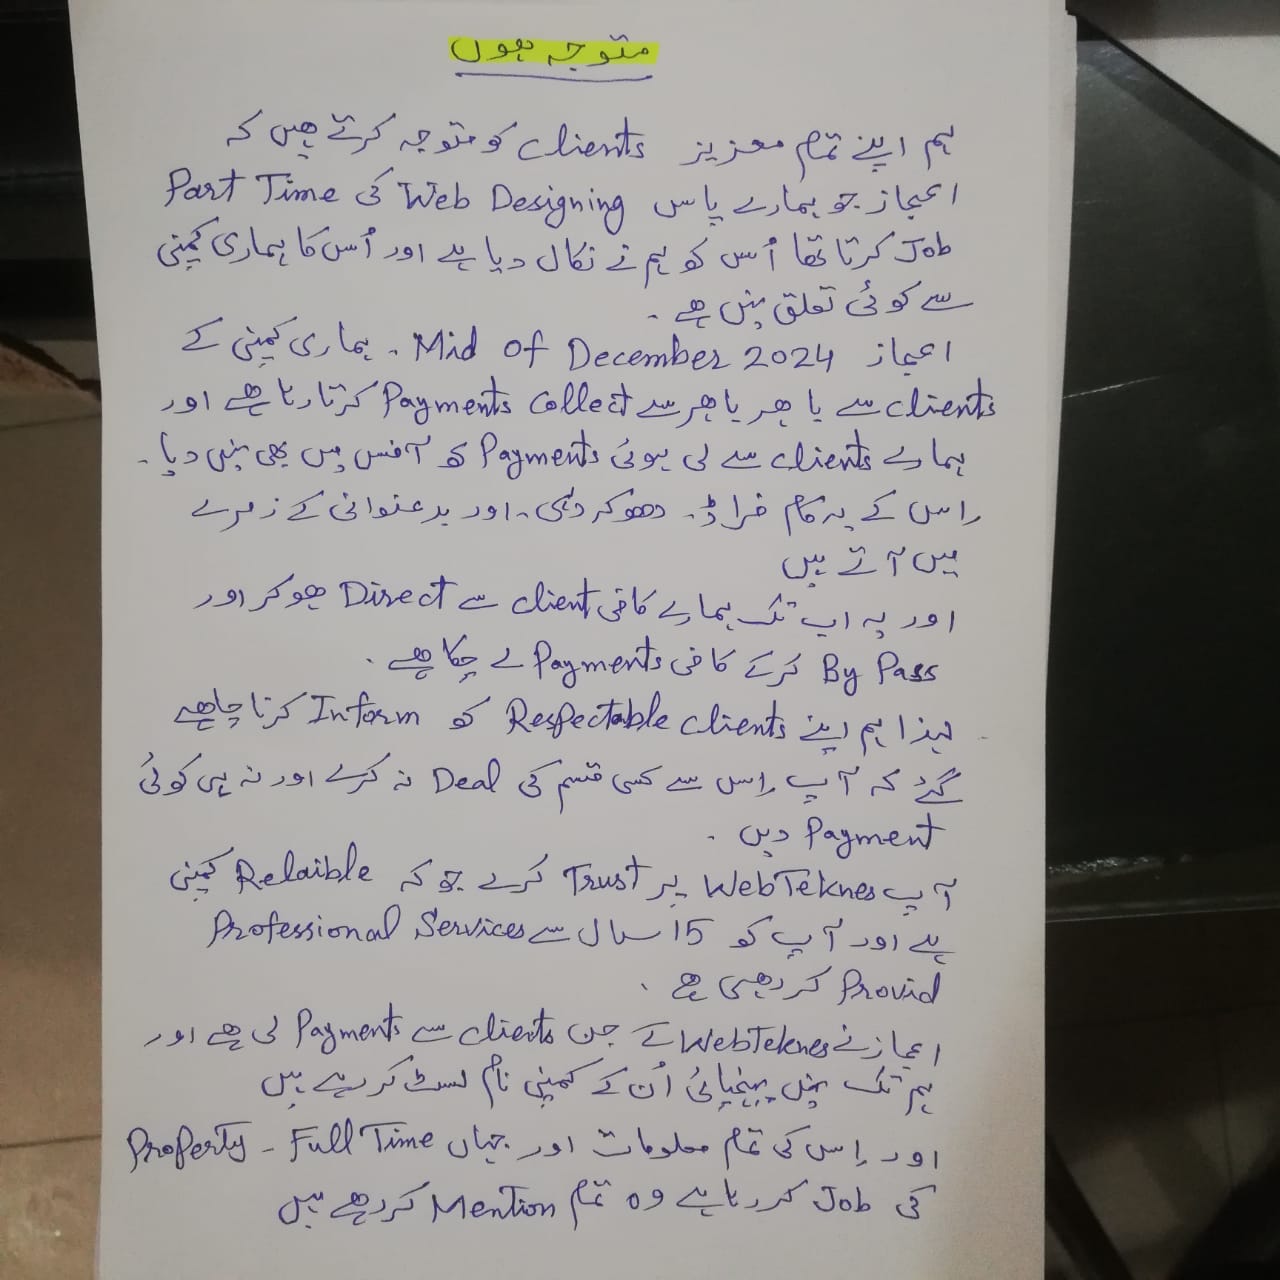 متوجہ ہوں
ہم اپنے تمام معزیز clients کو متوجہ کرتے ھیں کہ
اعجاز جو ہمارے پاس Web Designing کی Part Time
Job کرتا تھا اُس کو ہم نے نکال دیا ہے اور اُس کا ہماری کمپنی
سے کوئی تعلق نہیں ھے ۔
اعجاز Mid of December 2024 ۔ ہماری کمپنی کے
clients سے باھر باھر سے Payments collect کرتا رہا ھے اور
ہمارے clients سے لی ہوئی Payments کو آفس میں بھی نہیں دیا ۔
اِس کے یہ کام فراڈ ۔ دھوکہ دہی ۔ اور بدعنوانی کے زمرے
میں آتے ہیں
اور یہ اب تک ہمارے کافی client سے Direct ھوکر اور
By Pass کرکے کافی Payments لے چکا ھے ۔
لہذا ہم اپنے Respectable clients کو Inform کرنا چاھے
گئے کہ آپ اِس سے کسی قسم کی Deal نہ کرے اور نہ ہی کوئی
Payment دیں ۔
آپ WebTeknes پر Trust کرے جو کہ Relaible کمپنی
ہے اور آپ کو 15 سال سے Professional Services
Provid کر رھی ہے ۔
اعجاز نے WebTeknes کے جن clients سے Payments لی ھے اور
ہم تک نہیں پہنچائی اُن کے کمپنی نام لسٹ کررہے ہیں
اور اِس کی تمام معلومات اور جہاں Property - Full Time
کی Job کررہا ہے وہ تمام Mention کررھے ہیں